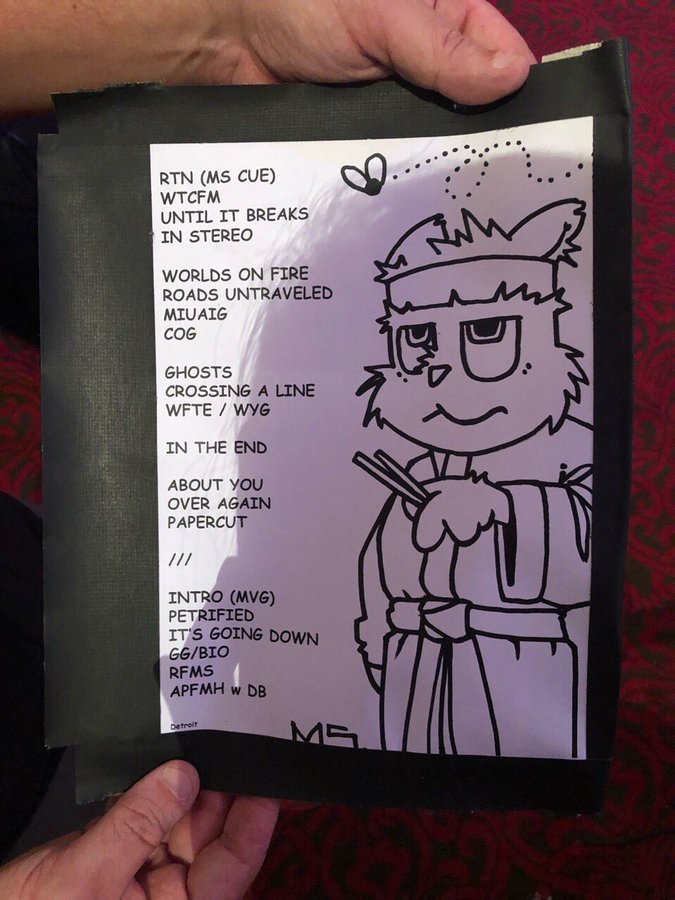 RTN (MS CUE)
WTCFM
UNTIL IT BREAKS
IN STEREO
WORLDS ON FIRE
ROADS UNTRAVELED
MIUAIG
COG
GHOSTS
CROSSING A LINE
WFTE / WYG
IN THE END
ABOUT YOU
OVER AGAIN
PAPERCUT
///
INTRO (MVG)
PETRIFIED
IT'S GOING DOWN
GG/BIO
RFMS
APFMH w DB
Detroit
MS